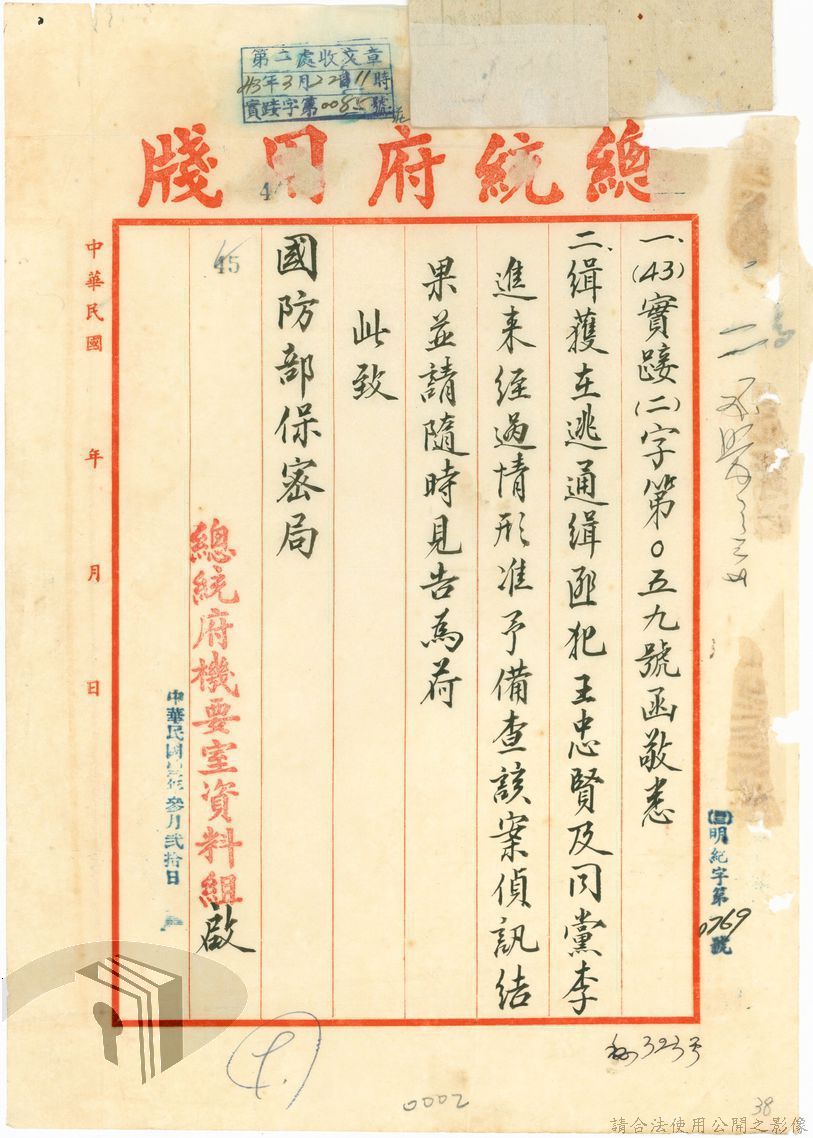 第二處收文章
43年3月22日11時
實踐字第0085號
總統府用牋
一、(43)實踐(二)字第0五九號函敬悉
二、緝獲在逃通緝匪犯王忠賢及同黨李
進來經過情形准予備查該案偵訊結
果並請隨時見告為荷
此致
國防部保密局
總統府機要室資料組啟
中華民國 參月貳拾日
45
中華民國 年 月 日
明紀字第
0769
號
0002
38
請合法使用公開之影像